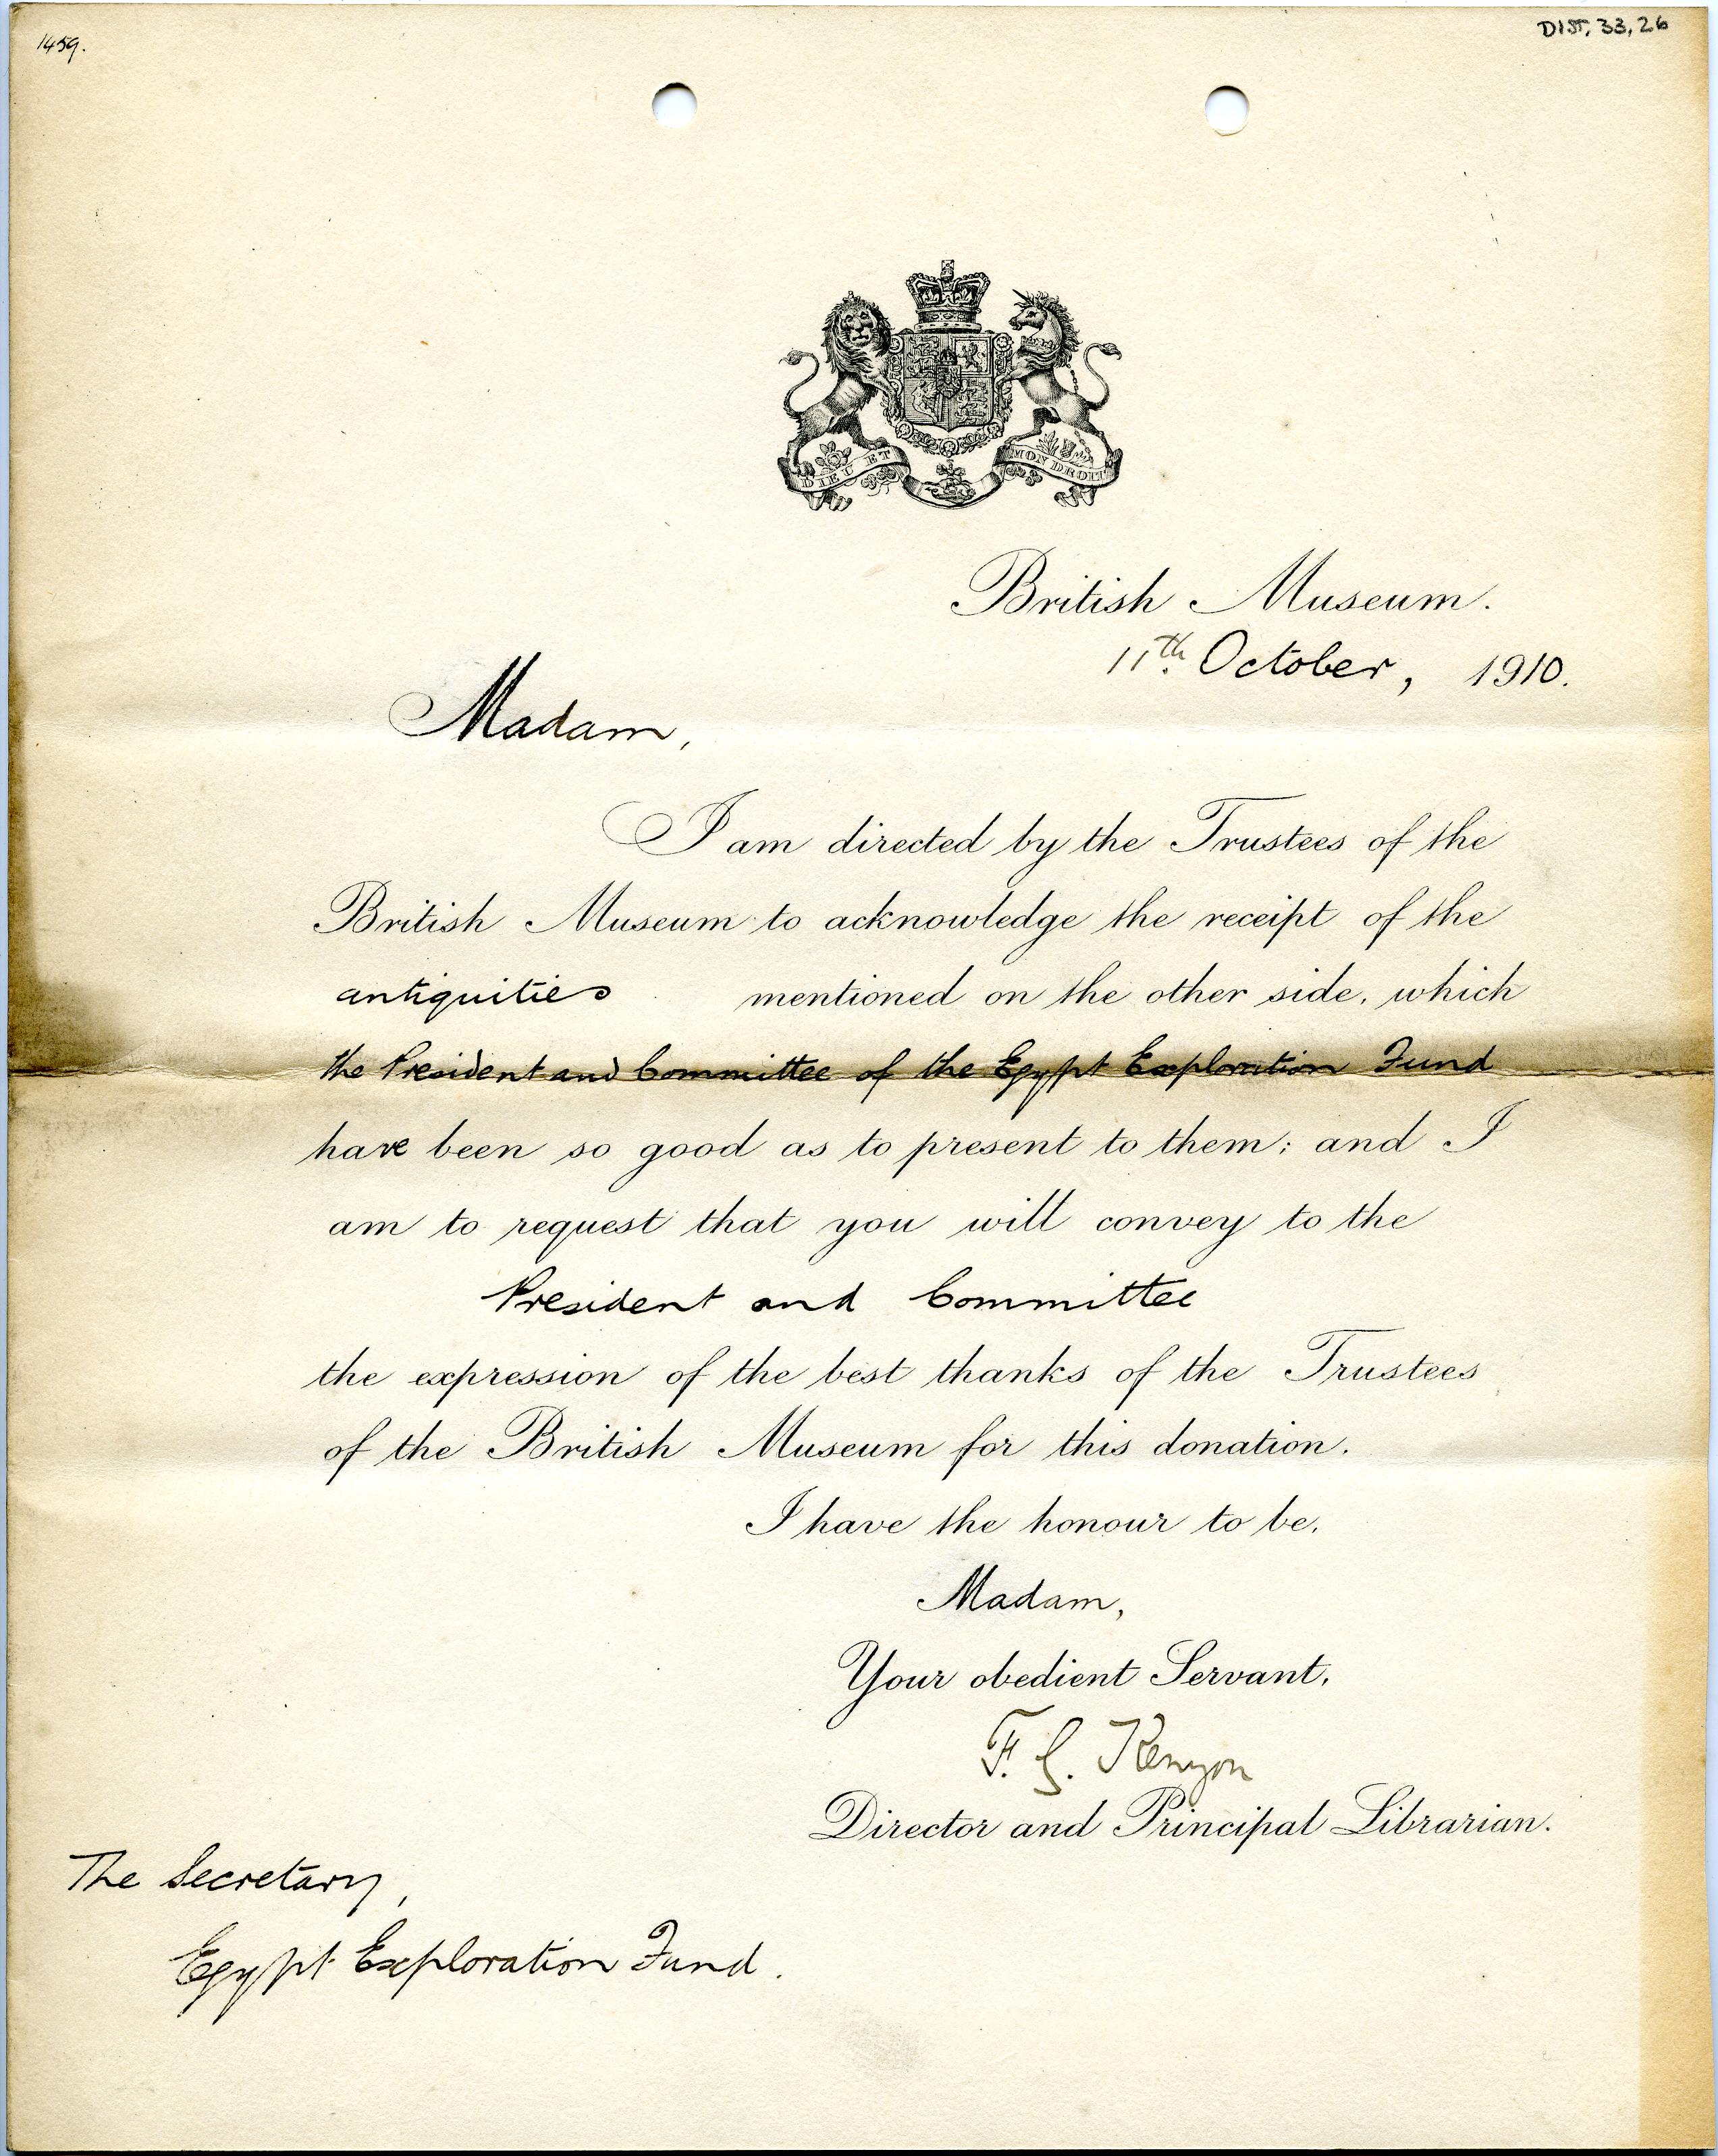 1459.
DIST. 33, 26
DIEU ET MON DROIT
British Museum.
11th. October, 1910.
Madam,
I am directed by the Trustees of the
British Museum to acknowledge the receipt of the
antiquities mentioned on the other side, which
the President and Committee of the Egypt Exploration Fund
have been so good as to present to them; and I
am to request that you will convey to the
President and Committee
the expression of the best thanks of the Trustees
of the British Museum for this donation.
I have the honour to be,
Madam,
Your obedient Servant,
F. G. Kenyon
Director and Principal Librarian.
The Secretary,
Egypt Exploration Fund.